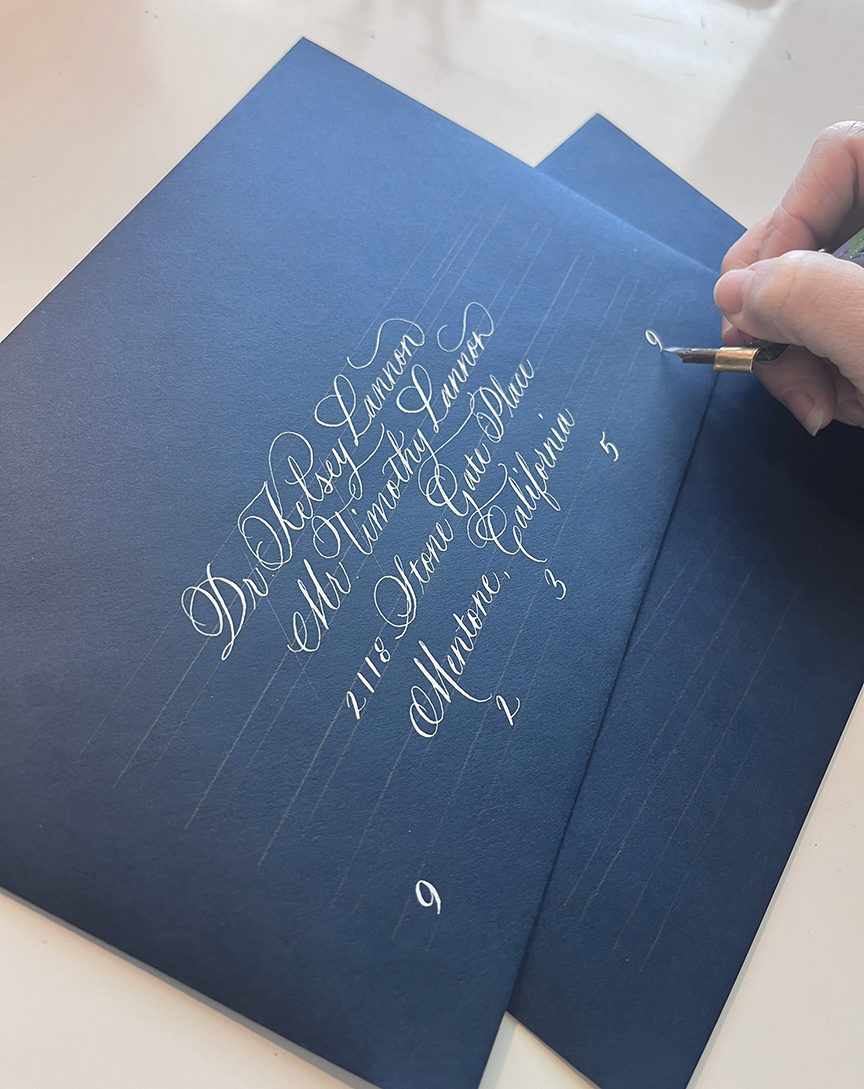 Dr Kelsey Lannon
Mr Timothy Lannon
2118 Stone Gate Place
Mentone, California
9 2 3 5 9